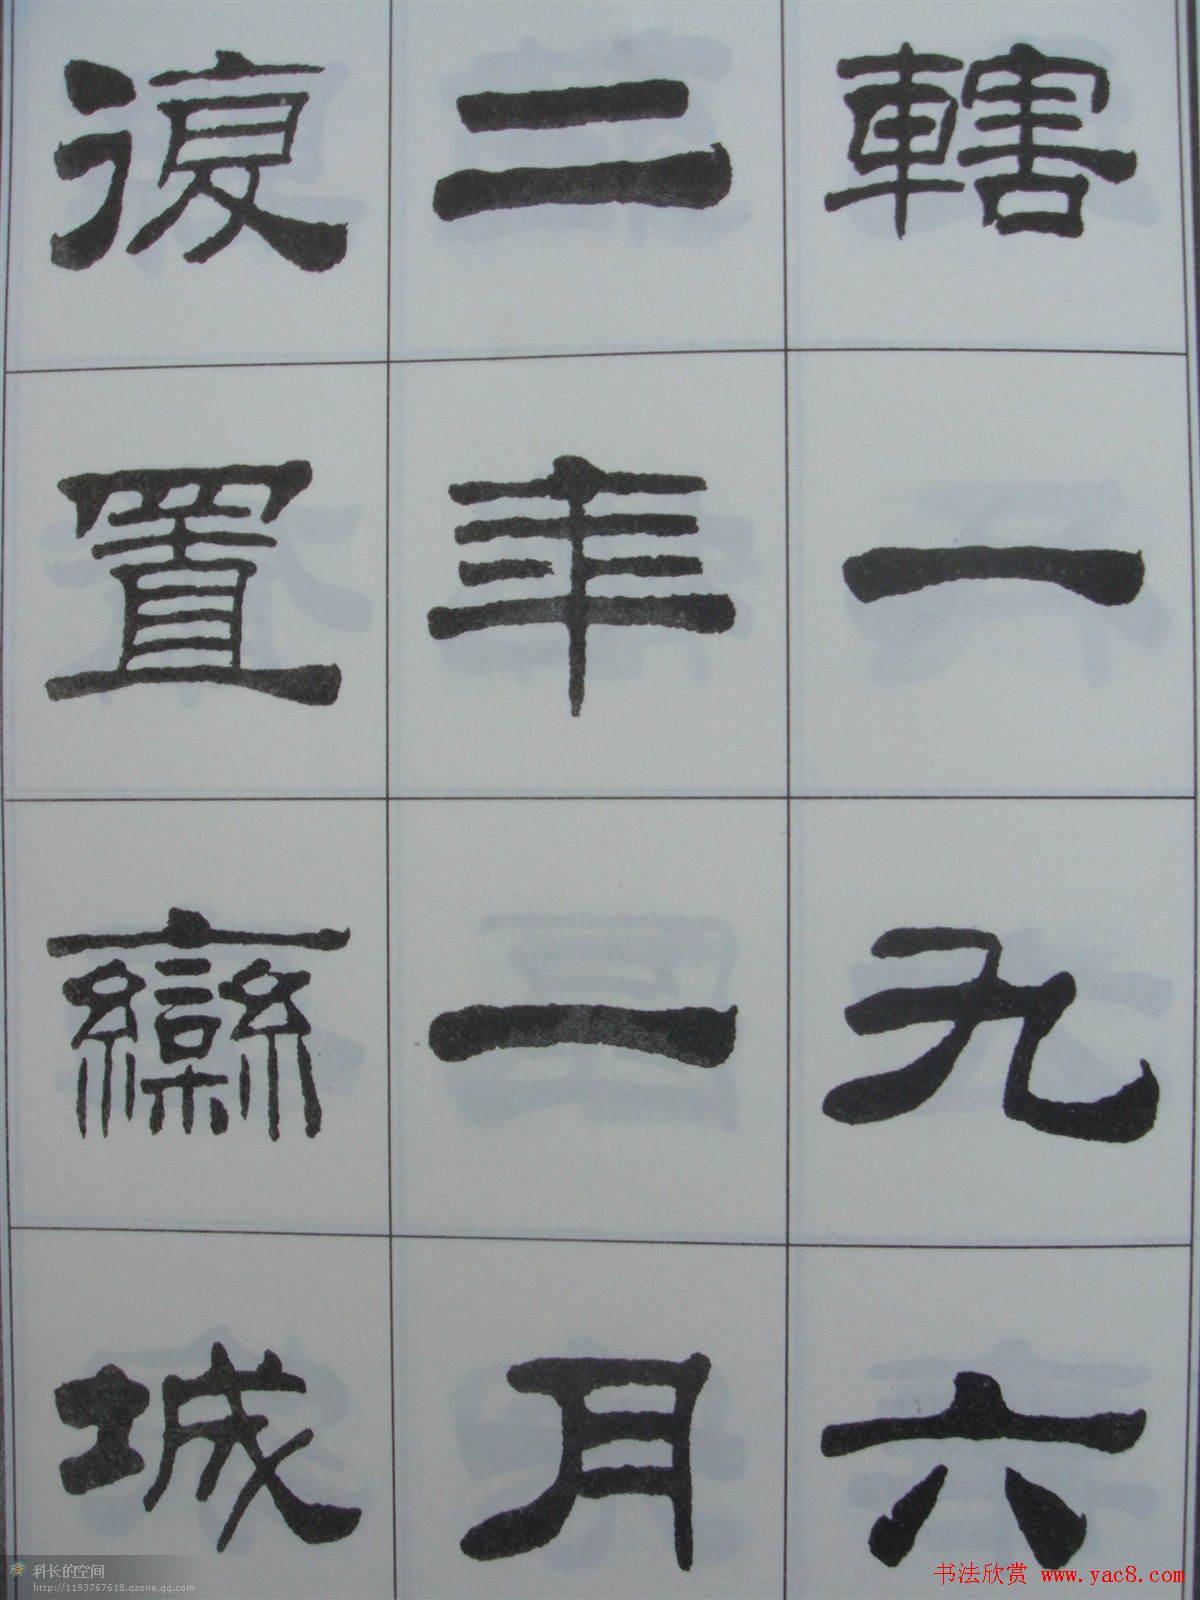 轄一九六
二年一月
復置欒城
科长的空间
http://1193767618.qzone.qq.com
书法欣赏 www.yac8.com